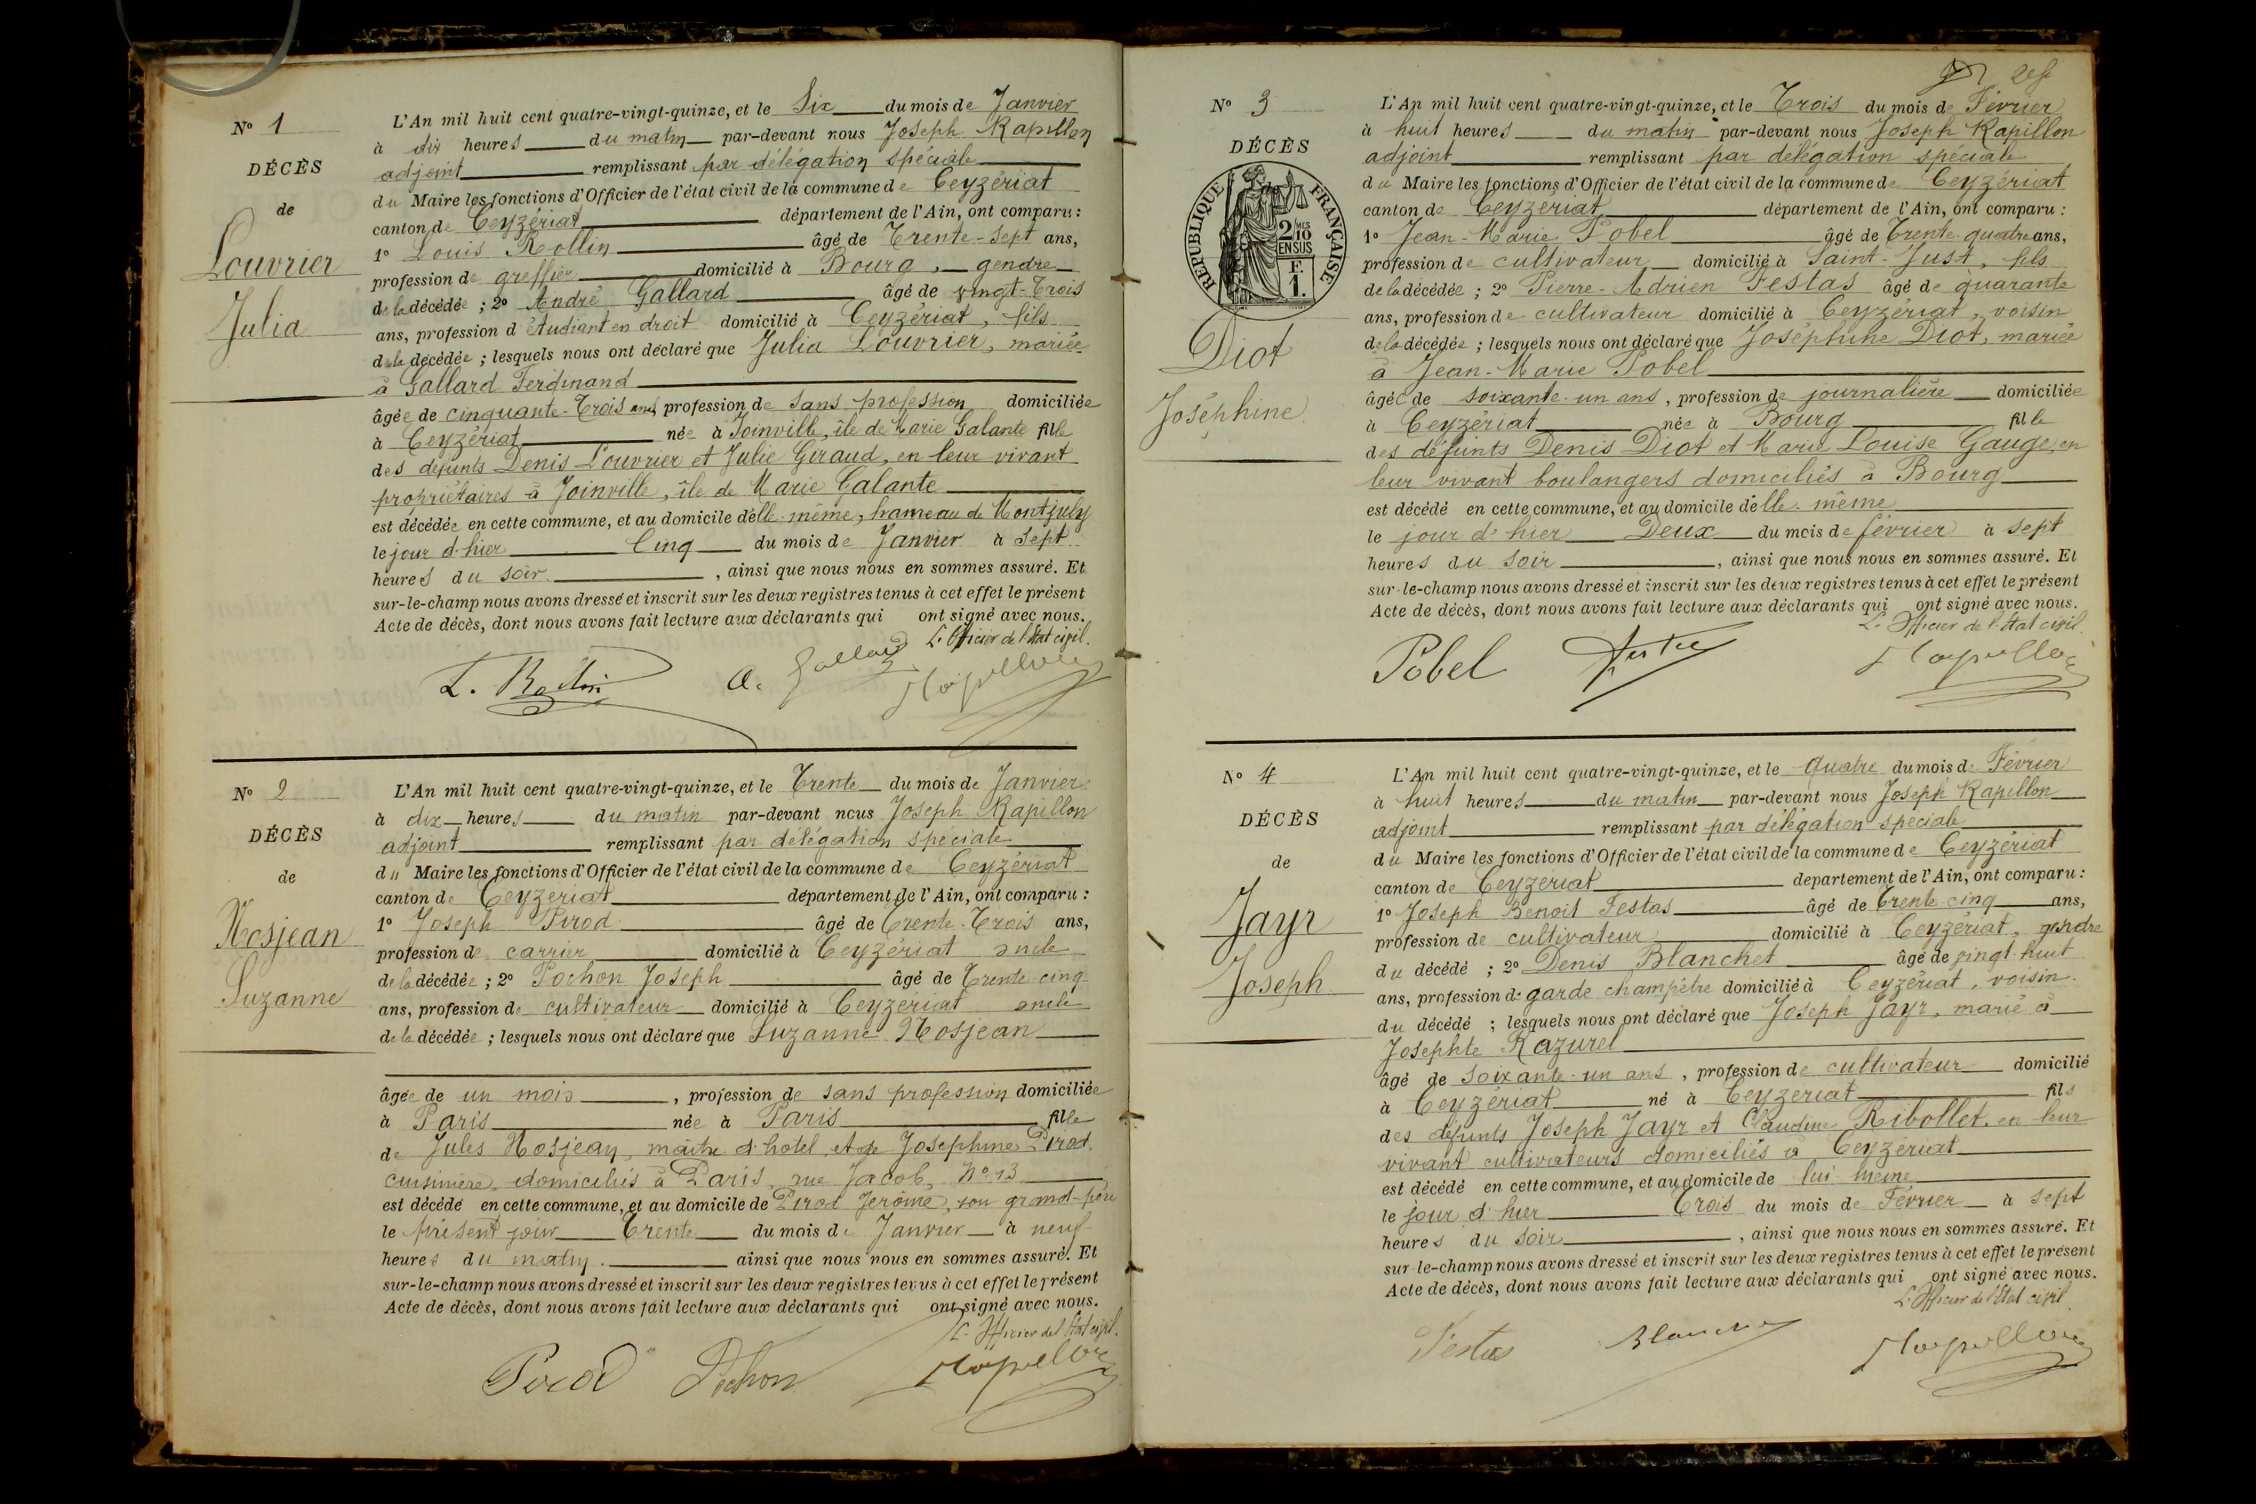 N° 1
DÉCÈS
de
Louvrier
Julia
L'An mil huit cent quatre-vingt-quinze, et le Six du mois de Janvier
à dix heures du matin par-devant nous Joseph Rapillon
adjoint remplissant par délégation spéciale
du Maire les fonctions d'Officier de l'état civil de la commune de Ceyzériat
canton de Ceyzériat département de l'Ain, ont comparu :
1° Louis Rollin âgé de Trente-Sept ans,
profession de greffier domicilié à Bourg, gendre
de la décédée ; 2° André Gallard âgé de vingt-Trois
ans, profession d'étudiant en droit domicilié à Ceyzériat, fils
de la décédée ; lesquels nous ont déclaré que Julia Louvrier, mariée
à Gallard Ferdinand
âgée de cinquante-Trois ans, profession de sans profession domiciliée
à Ceyzériat née à Joinville, île de Marie Galante fille
des défunts Denis Louvrier et Julie Giraud, en leur vivant
propriétaires à Joinville, île de Marie Galante
est décédée en cette commune, et au domicile d'elle-même, hameau de Montjuly
le jour d'hier Cinq du mois de Janvier à Sept
heures du soir, ainsi que nous nous en sommes assuré. Et
sur-le-champ nous avons dressé et inscrit sur les deux registres tenus à cet effet le présent
Acte de décès, dont nous avons fait lecture aux déclarants qui ont signé avec nous.
L'Officier de l'Etat civil.
L. Rollin A. Gallard Rapillon
N° 2
DÉCÈS
de
Mosjean
Suzanne
L'An mil huit cent quatre-vingt-quinze, et le Trente du mois de Janvier
à dix heures du matin par-devant nous Joseph Rapillon
adjoint remplissant par délégation spéciale
du Maire les fonctions d'Officier de l'état civil de la commune de Ceyzériat
canton de Ceyzériat département de l'Ain, ont comparu :
1° Joseph Pirod âgé de Trente-Trois ans,
profession de carrier domicilié à Ceyzériat oncle
de la décédée ; 2° Pochon Joseph âgé de Trente cinq
ans, profession de cultivateur domicilié à Ceyzériat oncle
de la décédée ; lesquels nous ont déclaré que Suzanne Mosjean
âgée de un mois, profession de sans profession domiciliée
à Paris née à Paris fille
de Jules Mosjean, maître d'hôtel et de Josephine Pirod,
cuisinière, domiciliés à Paris, rue Jacob, N° 13
est décédé en cette commune, et au domicile de Pirod Jérôme, son grand-père
le présent jour Trente du mois de Janvier à neuf
heures du matin. ainsi que nous nous en sommes assuré. Et
sur-le-champ nous avons dressé et inscrit sur les deux registres tenus à cet effet le présent
Acte de décès, dont nous avons fait lecture aux déclarants qui ont signé avec nous.
L'Officier de l'Etat civil.
Pirod Pochon Rapillon
N° 3
DÉCÈS
RÉPUBLIQUE FRANÇAISE
2/10 MES
EN SUS
F.
1.
Diot
Joséphine
L'An mil huit cent quatre-vingt-quinze, et le Trois du mois de Février
à huit heures du matin par-devant nous Joseph Rapillon
adjoint remplissant par délégation spéciale
du Maire les fonctions d'Officier de l'état civil de la commune de Ceyzériat
canton de Ceyzériat département de l'Ain, ont comparu :
1° Jean-Marie Pobel âgé de Trente quatre ans,
profession de cultivateur domicilié à Saint-Just, fils
de la décédée ; 2° Pierre-Adrien Festas âgé de quarante
ans, profession de cultivateur domicilié à Ceyzériat, voisin
de la décédée ; lesquels nous ont déclaré que Joséphine Diot, mariée
à Jean-Marie Pobel
âgée de soixante-un ans, profession de journalière domiciliée
à Ceyzériat née à Bourg fille
des défunts Denis Diot et Marie Louise Gauge, en
leur vivant boulangers domiciliés à Bourg
est décédé en cette commune, et au domicile d'elle-même
le jour d'hier Deux du mois de février à sept
heures du soir, ainsi que nous nous en sommes assuré. Et
sur-le-champ nous avons dressé et inscrit sur les deux registres tenus à cet effet le présent
Acte de décès, dont nous avons fait lecture aux déclarants qui ont signé avec nous.
L'Officier de l'Etat civil
Pobel Rapillon
N° 4
DÉCÈS
de
Jayr
Joseph
L'An mil huit cent quatre-vingt-quinze, et le quatre du mois de Février
à huit heures du matin par-devant nous Joseph Rapillon
adjoint remplissant par délégation spéciale
du Maire les fonctions d'Officier de l'état civil de la commune de Ceyzériat
canton de Ceyzériat département de l'Ain, ont comparu :
1° Joseph Benoit Festas âgé de Trente cinq ans,
profession de cultivateur domicilié à Ceyzériat, gendre
du décédé ; 2° Denis Blanchet âgé de vingt-huit
ans, profession de garde champêtre domicilié à Ceyzériat, voisin
du décédé ; lesquels nous ont déclaré que Joseph Jayr, marié à
Josephte Razurel
âgé de soixante-un ans, profession de cultivateur domicilié
à Ceyzériat né à Ceyzériat fils
des défunts Joseph Jayr et Claudine Ribollet, en leur
vivant cultivateurs domiciliés à Ceyzériat
est décédé en cette commune, et au domicile de lui-même
le jour d'hier Trois du mois de Février à sept
heures du soir, ainsi que nous nous en sommes assuré. Et
sur-le-champ nous avons dressé et inscrit sur les deux registres tenus à cet effet le présent
Acte de décès, dont nous avons fait lecture aux déclarants qui ont signé avec nous.
L'Officier de l'Etat civil.
Festas Blanchet Rapillon